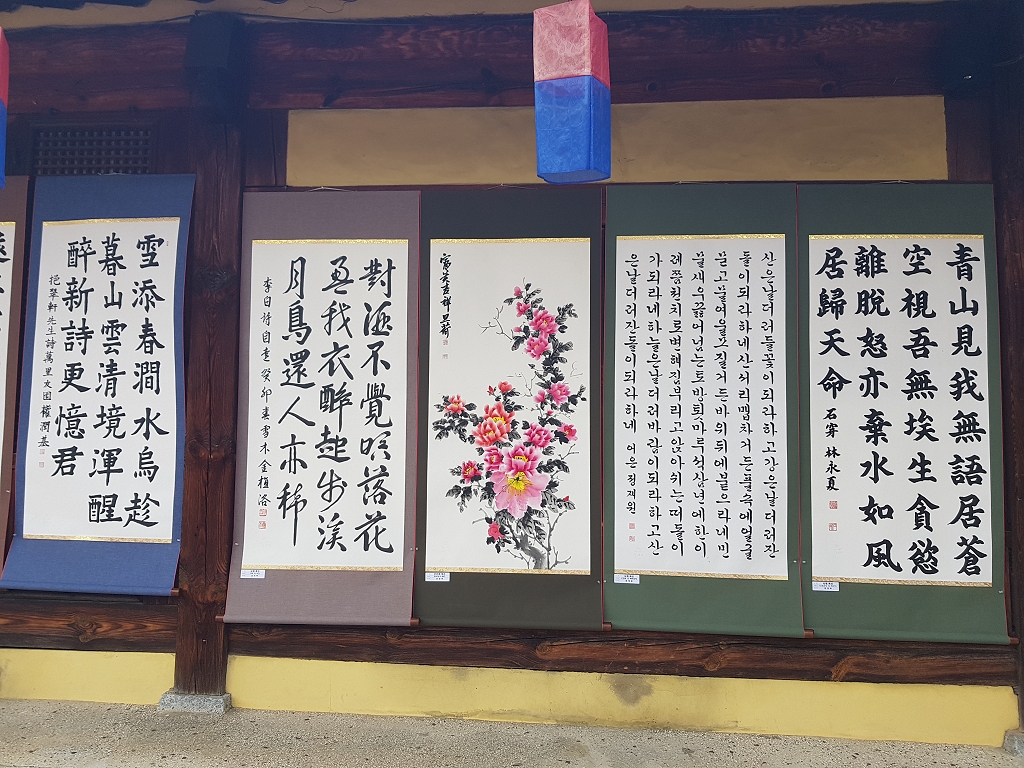 青山見我無語居蒼
空視吾無埃生貪慾
離脫怒亦棄水如風
居歸天命 石穿 林永夏
산은날더러들꽃이되라하고강은날더러잔
돌이되라하네산서리맵차거든풀속에얼굴
묻고물여울모질거든바위뒤에붙으라네민
물새우끓어넘는토방툇마루석삼년에한이
레쯤천치로변해짐부리고앉아쉬는떠돌이
가되라네하늘은날더러바람이되라하고산
은날더러잔돌이되라하네 어은 정재원
富貴吉祥
對酒不覺暝落花
盈我衣醉起步溪
月鳥還人亦稀
李白詩自遣 癸卯春 雪木 金植洛
雪添春澗水烏趁
暮山雲淸境渾醒
醉新詩更憶君
挹翠軒先生詩 萬里 權潤基